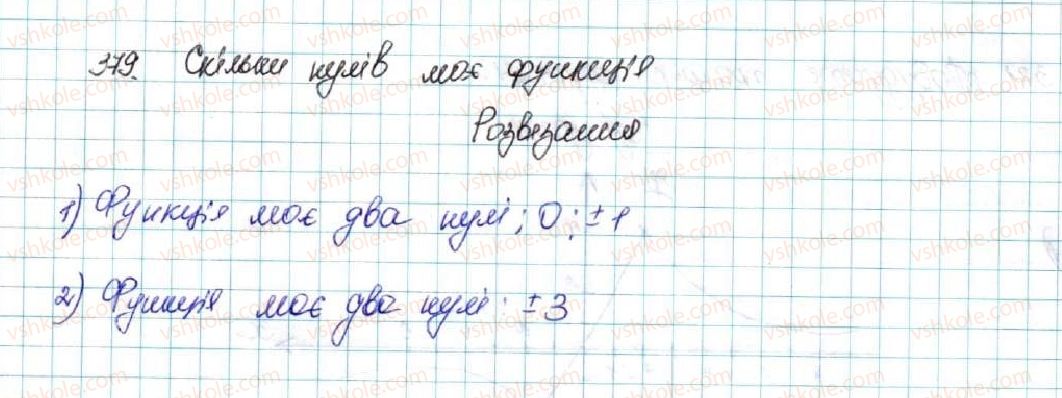 379. Скільки нулів має функція
Розвязання
1) Функція має два нулі; 0; ±1
2) Функція має два нулі: ±3